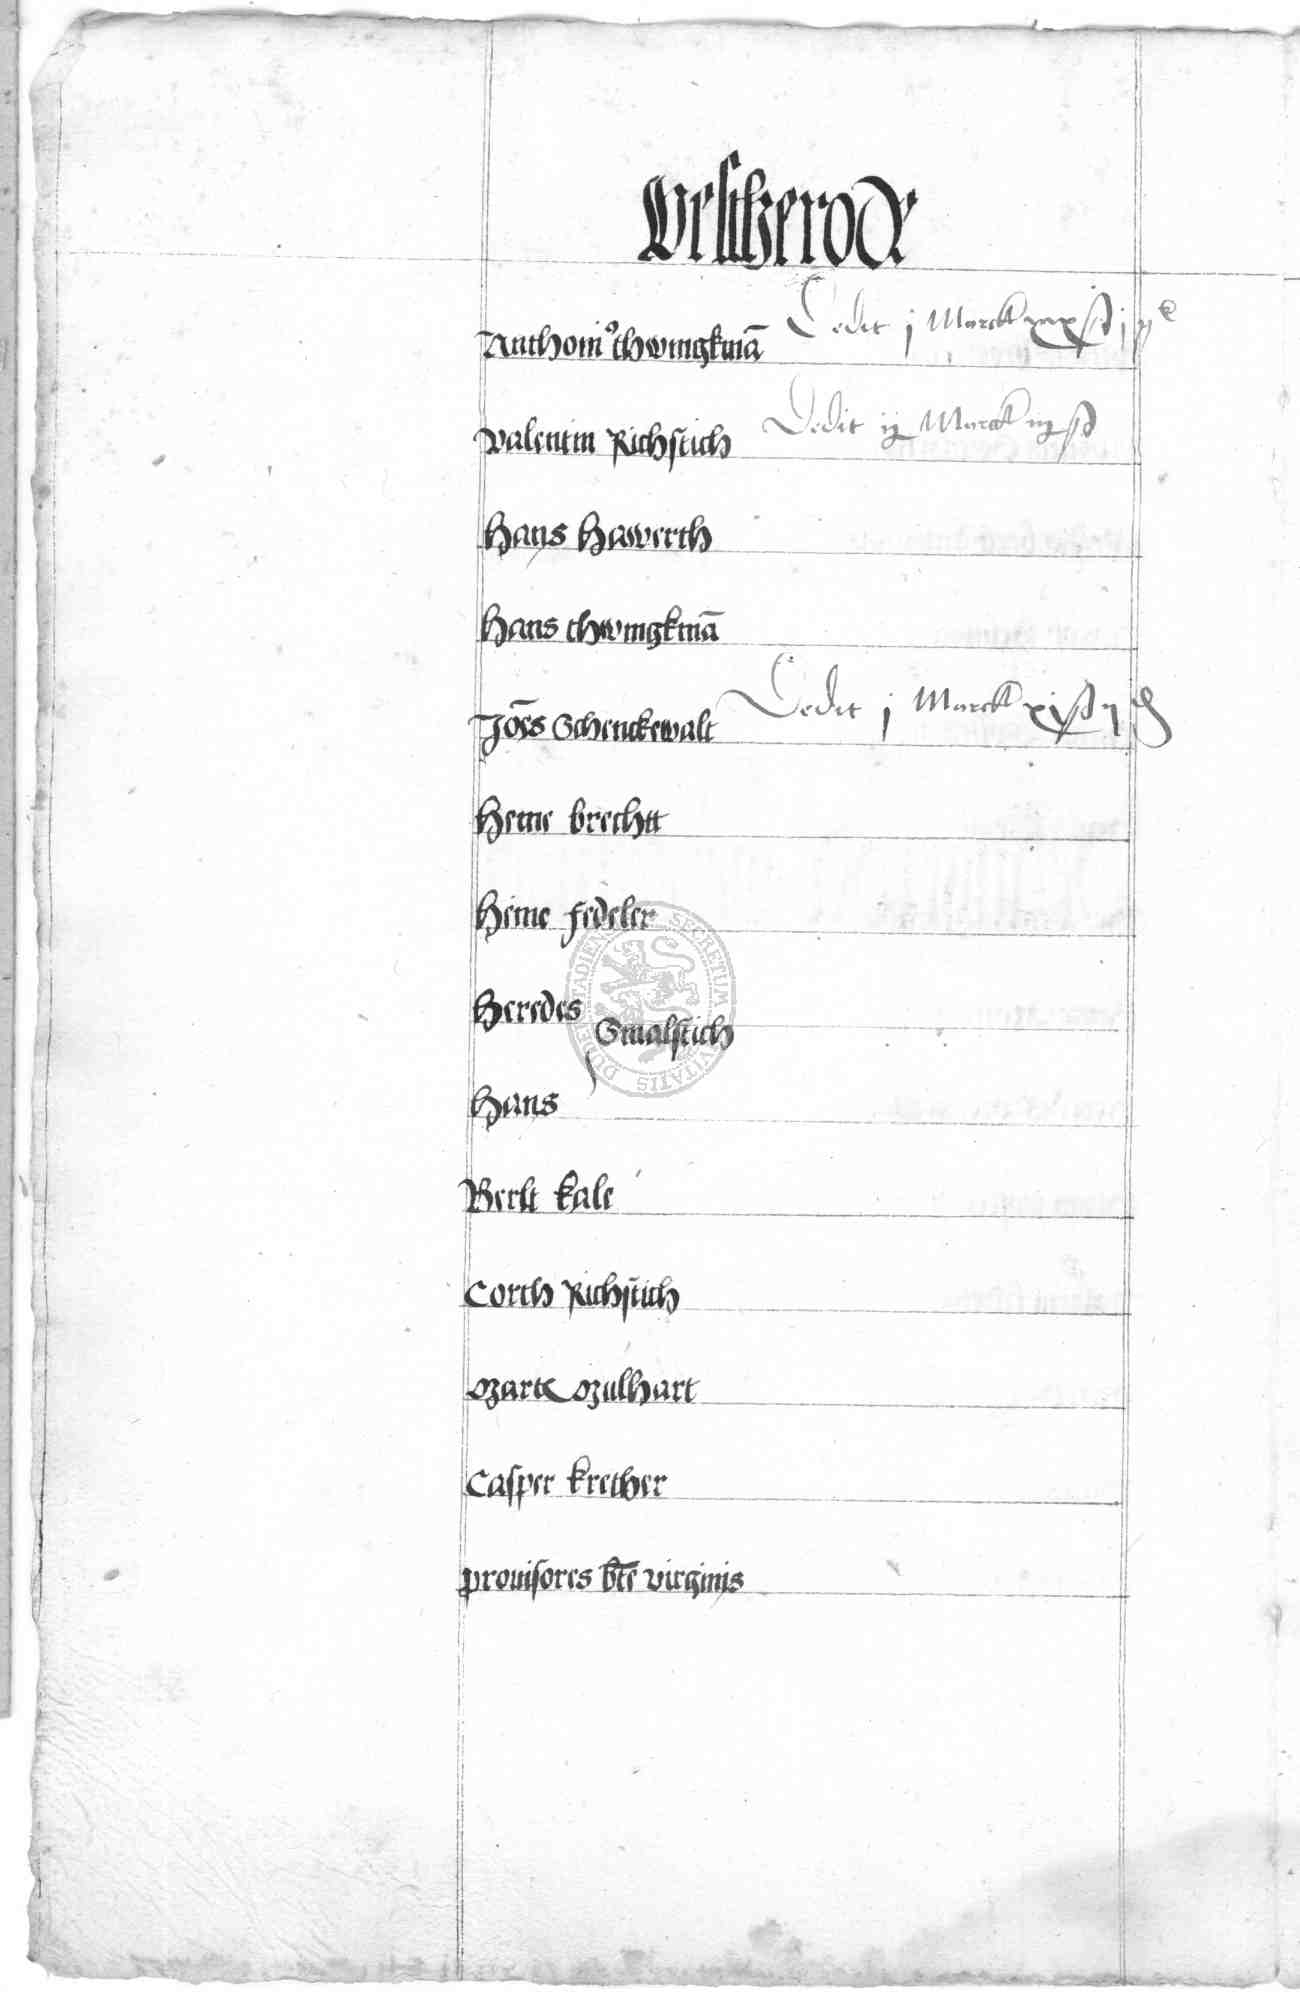 Desitzerode
Anthoni⁹ thwingkmā Dedit j Marck
Valentin Richstich Dedit ij Marck iiij ß
Hans Hawerth
Hans thwingkmā
Joēs Schenckewalt Dedit j Marck xj ß
Heine brechtt
Heine fedeler
Heredes
Smalstich
Hans
Berlt kale
Corth Richstich
Casper krether
prouisores bte virginis
SECRETUM CIVITATIS DUDERSTADIENSIS